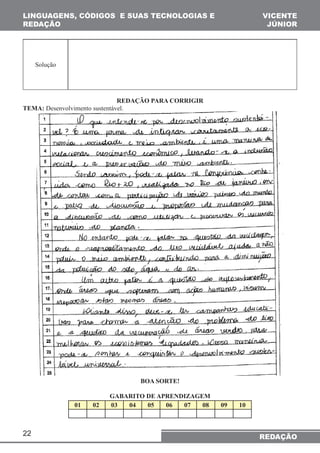 LINGUAGENS, CÓDIGOS E SUAS TECNOLOGIAS E
REDAÇÃO
VICENTE
JÚNIOR
Solução
REDAÇÃO PARA CORRIGIR
TEMA: Desenvolvimento sustentável.
1 O que entende-se por desenvolvimento sustentá-
2 vel? É uma forma de integrar corretamente a eco-
3 nomia, sociedade e meio ambiente, é uma maneira de
4 relacionar crescimento econômico, levando-se a inclusão
5 social e a preservação do meio ambiente.
6 Sendo assim, pode-se falar na Conferência conhe-
7 cida como Rio+20, realizada no Rio de Janeiro, on-
8 de contou com a participação de vários países do mundo
9 a palco de discussão e propostas de mudanças para
10 a discussão de como utilizar e preservar os recursos
11 naturais do planeta.
12 No entanto pode-se falar na questão da reciclagem,
13 onde o reaproveitamento do lixo reciclável ajuda a não
14 poluir o meio ambiente, contribuindo para a diminuição
15 da poluição do solo, água e do ar.
16 Um outro fator é a questão do reflorestamento,
17 onde áreas que sofreram com ações humanas, visam
18 recuperar estas mesmas áreas.
19 Diante disso, deve-se ter campanhas educati-
20 vas para chamar a atenção ao problema do lixo
21 e a questão da recuperação de áreas verdes para
22 melhorar os ecossistemas degradados. Dessa maneira,
23 pode-se sonhar e conquistar o desenvolvimento susten-
24 tável universal.
25
BOA SORTE!
GABARITO DE APRENDIZAGEM
01 02 03 04 05 06 07 08 09 10
22
REDAÇÃO